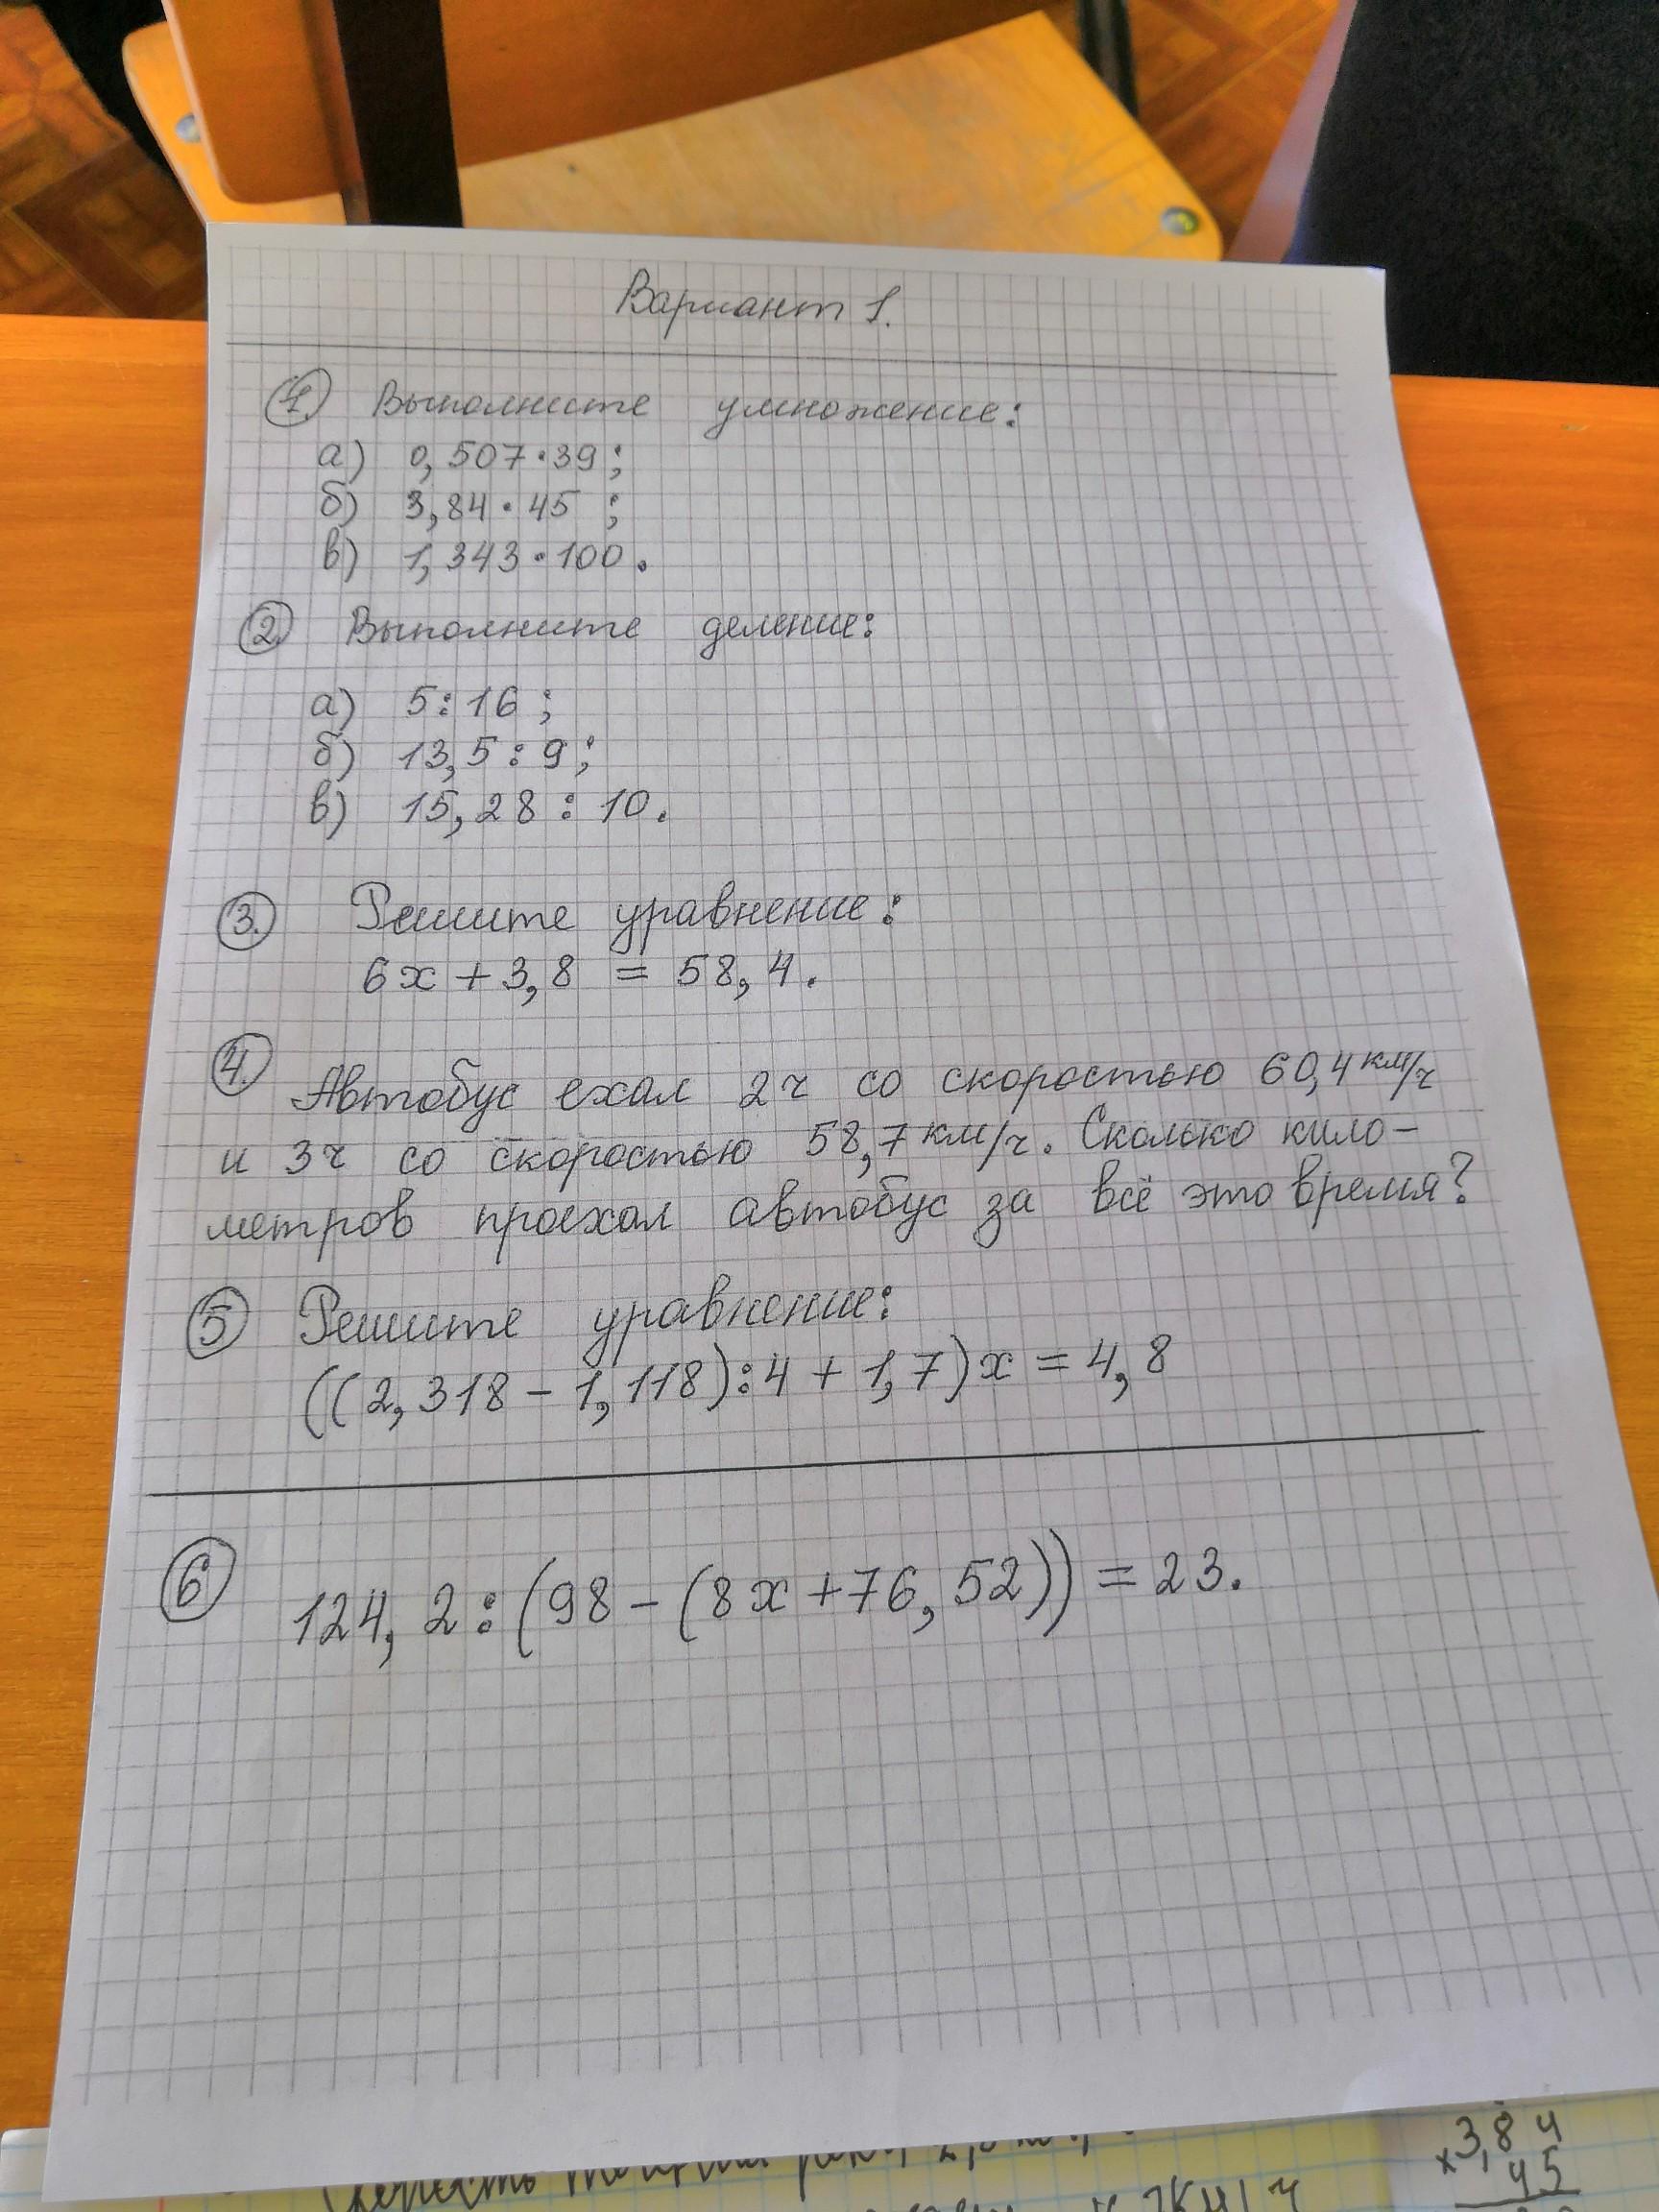 Вариант 1.
1. Выполните умножение:
а) 0,507·39;
б) 3,84·45;
в) 1,343·100.
2. Выполните деление:
а) 5:16;
б) 13,5:9;
в) 15,28:10.
3. Решите уравнение:
6x+3,8 = 58,4.
4. Автобус ехал 2ч со скоростью 60,4 км/ч
и 3ч со скоростью 58,7 км/ч. Сколько кило-
метров проехал автобус за всё это время?
5 Решите уравнение:
((2,318-1,118):4+1,7)x=4,8
6 124,2:(98-(8x+76,52))=23.
×3,84
45